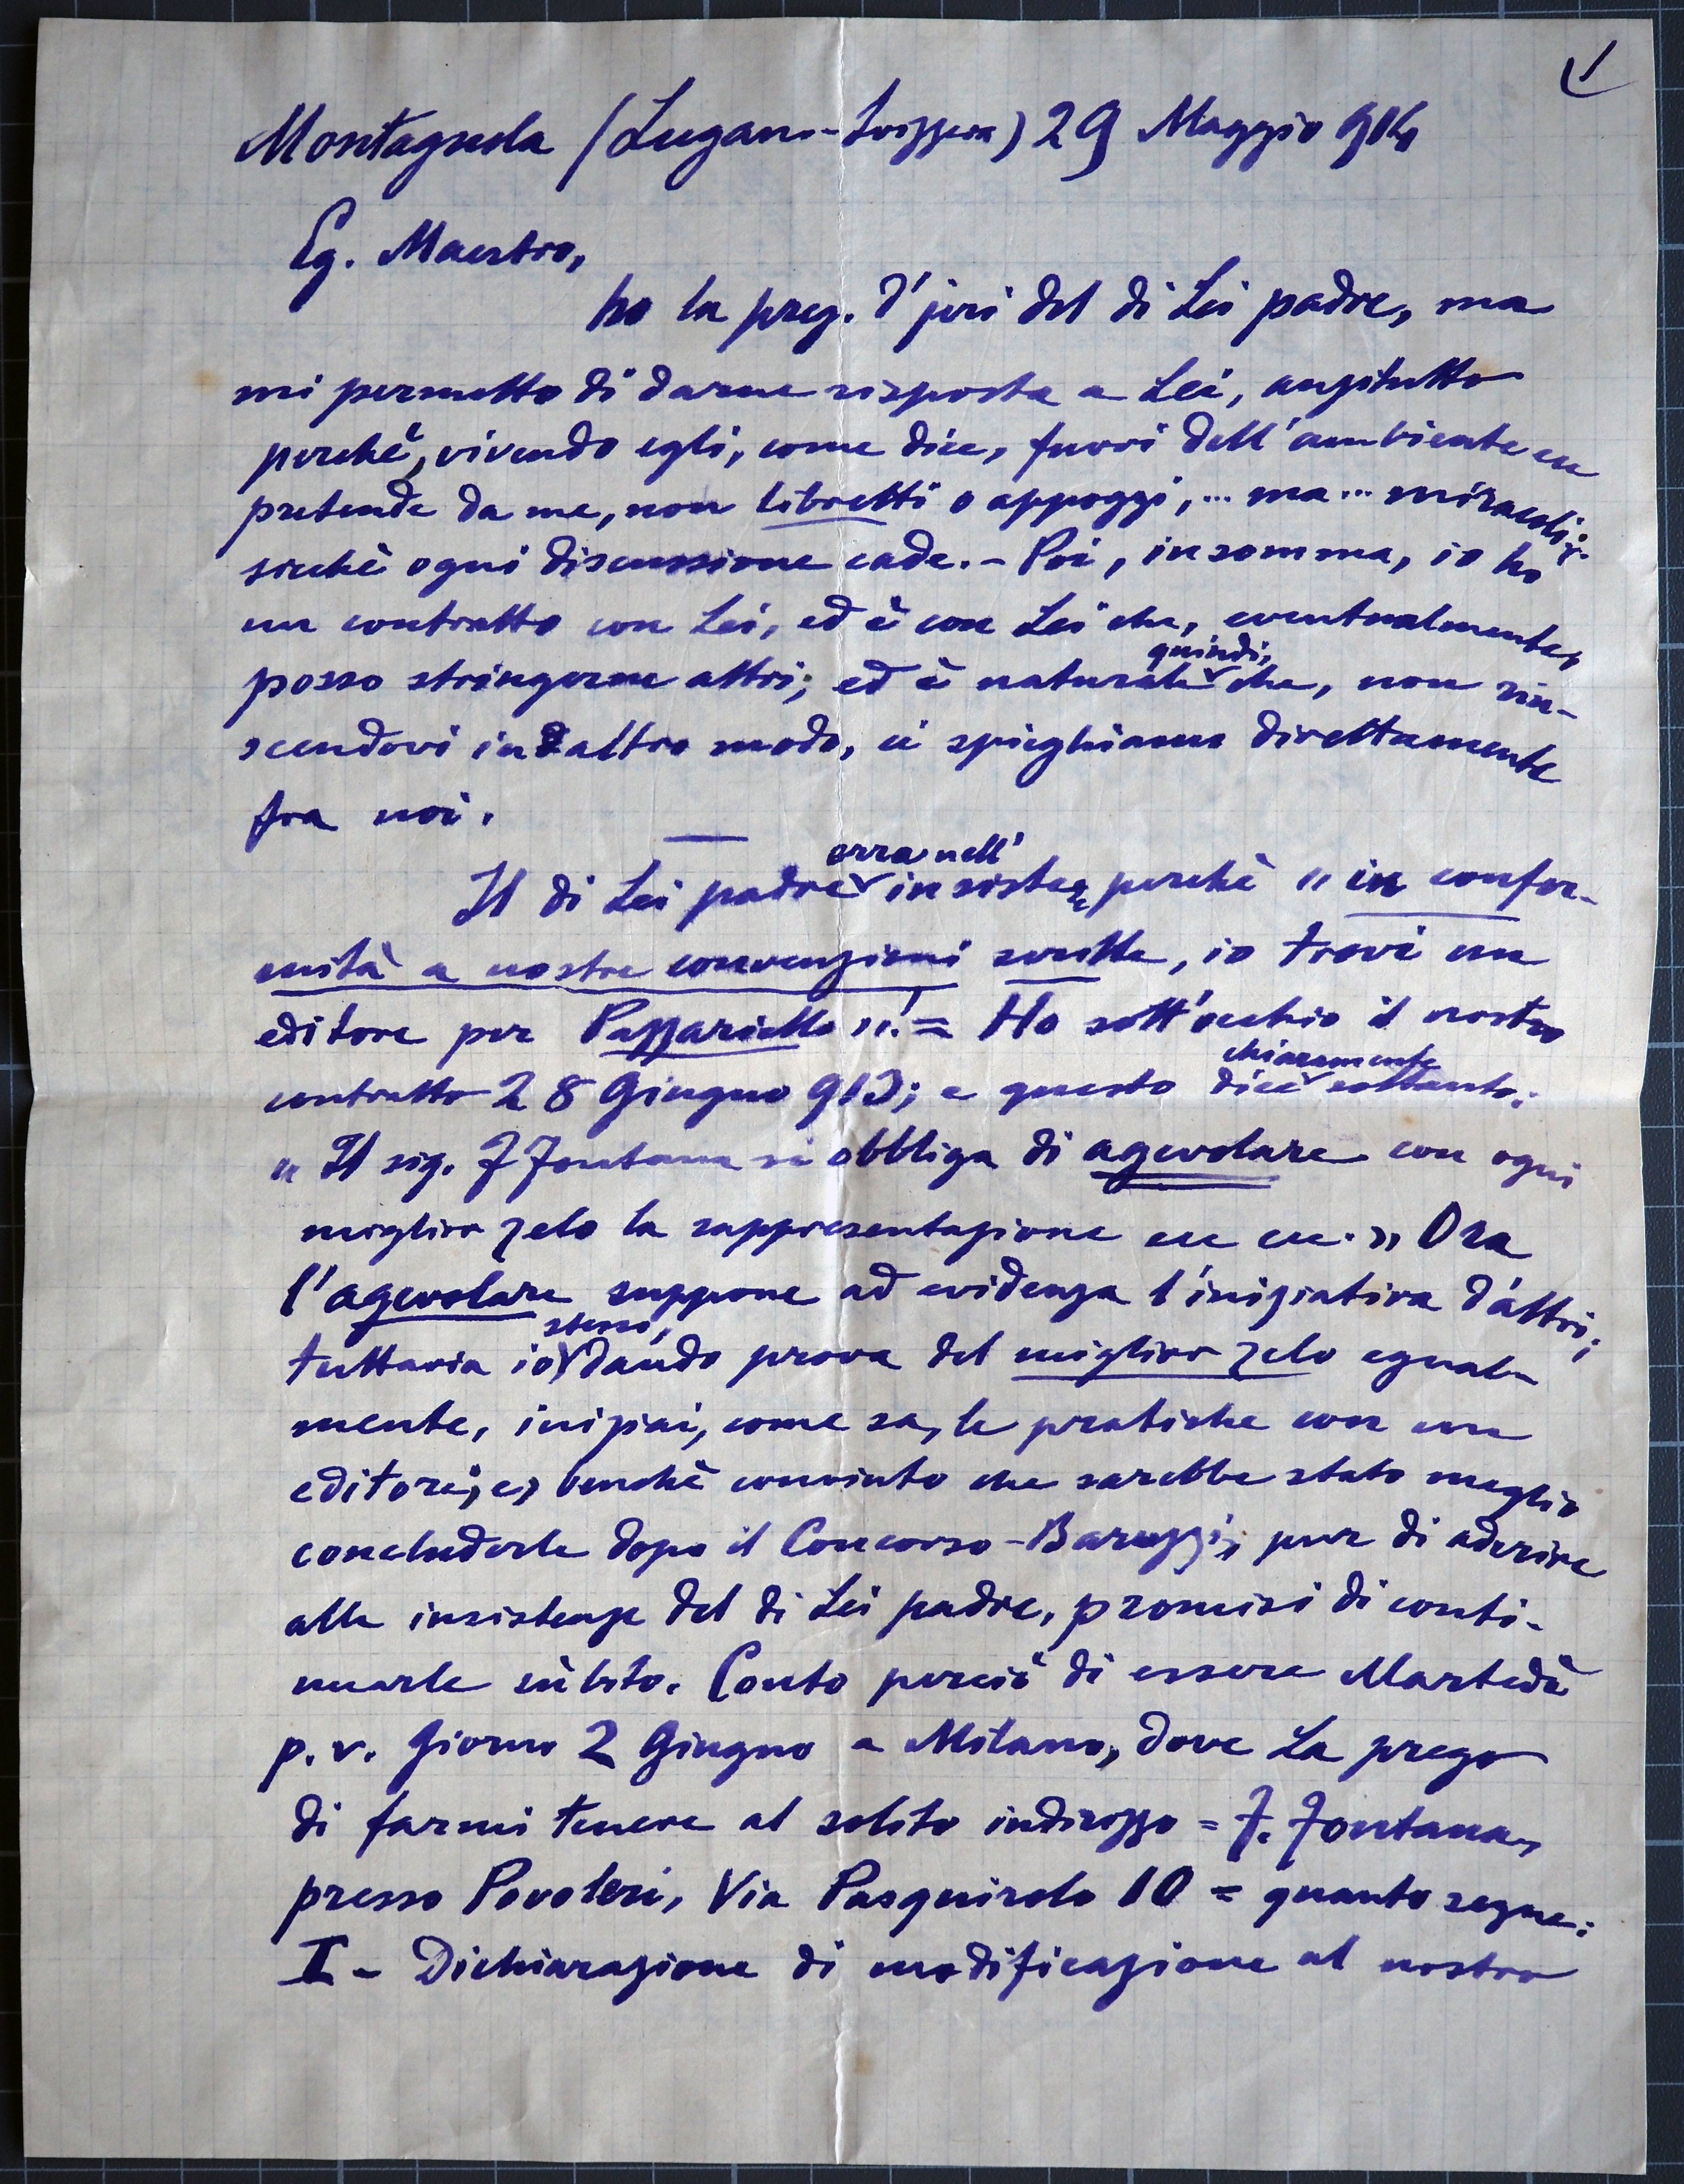 Montagnola (Lugano-Svizzera) 29 Maggio 914
Eg. Maestro,
ho la preg. d'jeri del di Lei padre, ma
mi permetto di darne risposta a Lei, anzitutto
perchè, vivendo egli, come dice, fuori dell'ambiente ecc
pretende da me, non libretti o appoggi, ... ma ... miracoli;
sicchè ogni discussione cade. - Poi, insomma, io ho
un contratto con Lei, ed è con Lei che, eventualmente,
posso stringerne altri; ed è naturale quindi, che, non riu-
scendovi in altro modo, ci spieghiamo direttamente
fra noi.
Il di Lei padre erra nell' insistere perchè " in confor-
mità a nostre convenzioni scritte, io trovi un
editore per Pazzariello "! = Ho sott'occhio il nostro
contratto 28 Giugno 913; e questo dice chiaramente soltanto:
" Il sig. F Fontana si obbliga di agevolare con ogni
miglior zelo la rappresentazione ecc ecc. " Ora
l'agevolare suppone ad evidenza l'iniziativa d'altri;
tuttavia io stesso, dando prova del miglior zelo egual-
mente, iniziai, come sa, le pratiche con un
editore; e, benchè convinto che sarebbe stato meglio
concluderle dopo il Concorso-Baruzzi, pur di aderire
alle insistenze del di Lei padre, promisi di conti-
nuarle sùbito. Conto perciò di essere Martedì
p. v. giorno 2 Giugno a Milano, dove La prego
di farmi tenere al solito indirizzo = F. Fontana,
presso Povoleri, Via Pasquirolo 10 = quanto segue:
I - Dichiarazione di modificazione al nostro